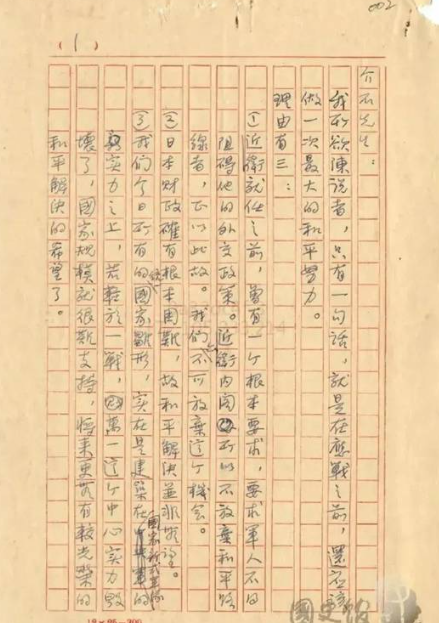 002
(1)
介石先生：
我所欲陳說者，只有一句話，就是在應戰之前，還应該
做一次最大的和平努力。
理由有三：
①近衛就任之前，曾有一个根本要求，要求軍人不得
阻碍他的外交政策。近衛內閣所以不放棄和平路
線者，正以此故。我們不可放棄這个機会。
②日本財政確有根本困難，故和平解決並非無望。
③我們今日所有的國家雛形，实在是建築在國家新式軍隊的
实力之上，若轻於一戰，萬一這个中心实力毀
壞了，國家規模就很難支持，將來更无有較光榮的
和平解決的希望了。
國史館